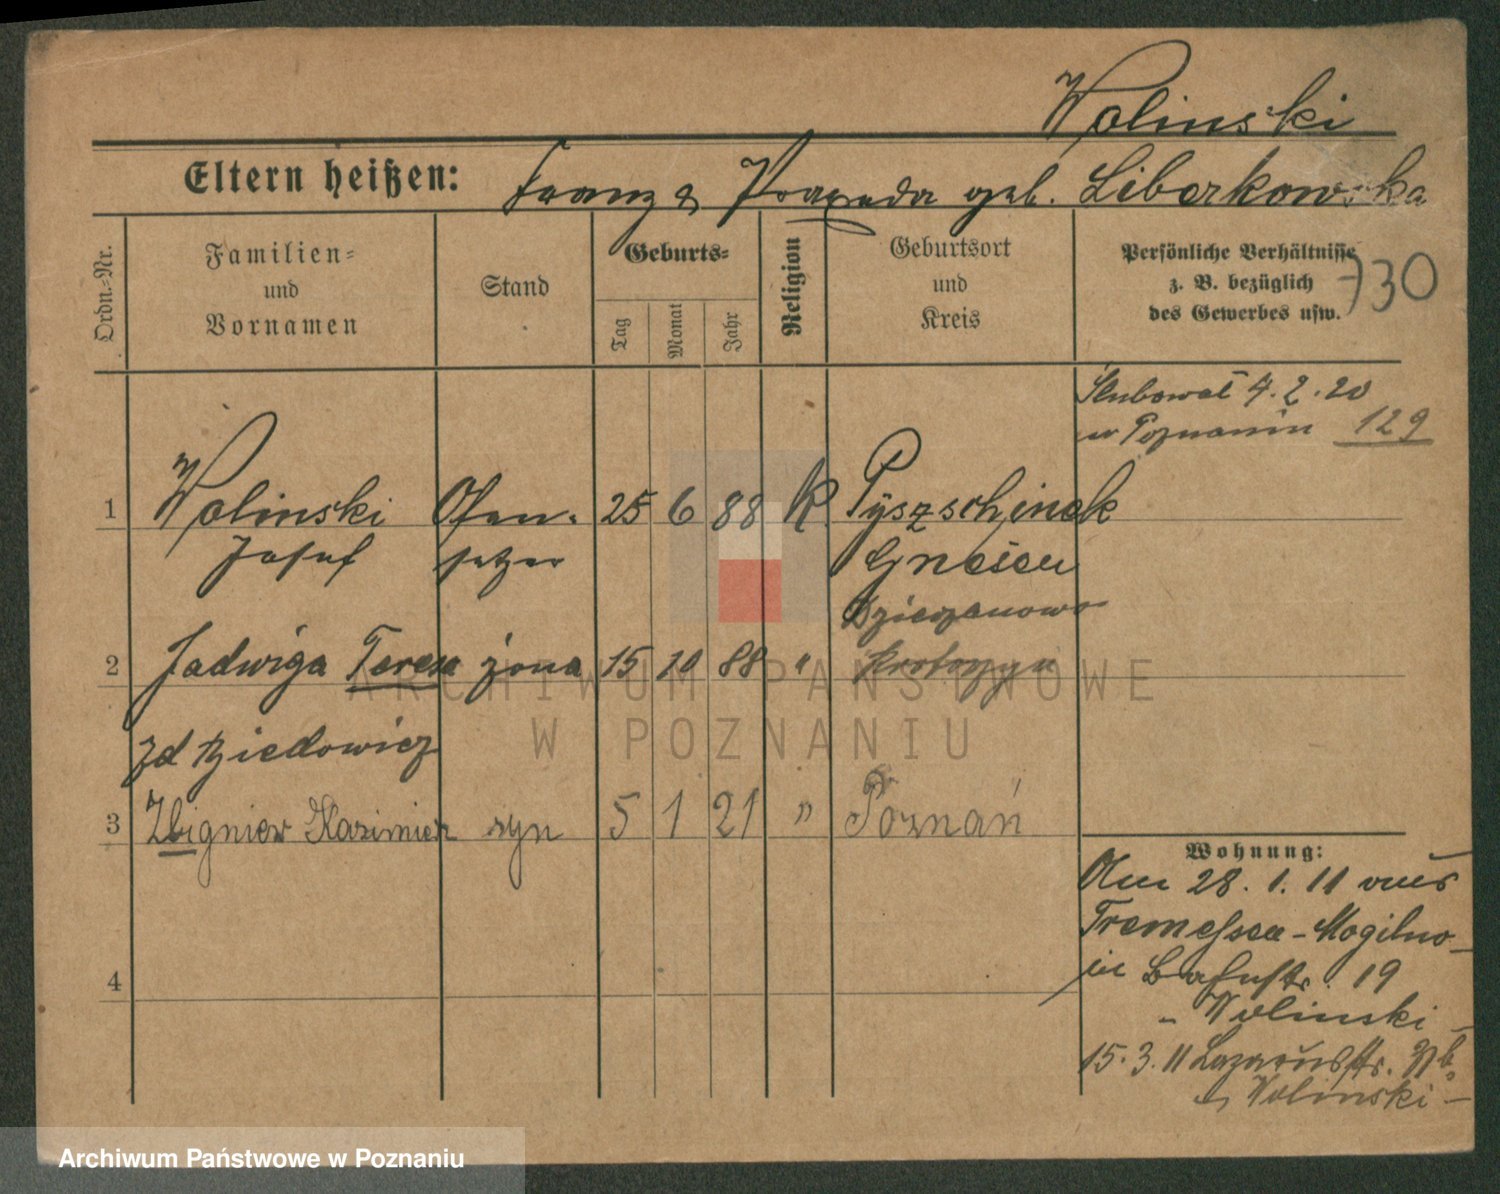 Wolinski
Eltern heißen: Franz & Praxeda geb. Liberkowska
Ordn.-Nr.
Familien-
und
Vornamen
Stand
Geburts-
Tag
Monat
Jahr
Religion
Geburtsort
und
Kreis
Persönliche Verhältnisse
z. B. bezüglich
des Gewerbes usw.
730
Ślubował 4.2.20
w Poznaniu 129
1 Wolinski Ofen- 25 6 88 K Pyszschinek
Josef setzer Gnesen
Dzierzanowo
2 Jadwiga Teresa żona 15 10 88 " Krotoszyn
zd
3 Zbigniew Kazimierz syn 5 1 21 " Poznań
4
Wohnung:
Am 28.1.11 aus
Tremessen-Mogilno
in 19
- Wolinski -
15.3.11 Lazarusstr.
Wolinski -
ARCHIWUM PAŃSTWOWE
W POZNANIU
Archiwum Państwowe w Poznaniu